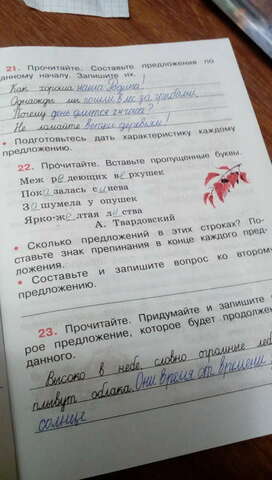 21. Прочитайте. Составьте предложения по
данному началу. Запишите их.
Как хороша наша Родина!
Однажды мы пошли в лес за грибами.
Почему
Не ломайте ветки деревьев!
• Подготовьтесь дать характеристику каждому
предложению.
22. Прочитайте. Вставьте пропущенные буквы.
Меж редеющих верхушек
Показалась синева
Зашумела у опушек
Ярко-желтая листва
А. Твардовский
• Сколько предложений в этих строках? По-
ставьте знак препинания в конце каждого пред-
ложения.
• Составьте и запишите вопрос ко второму
предложению.
23. Прочитайте. Придумайте и запишите
рое предложение, которое будет продолже
данного.
Высоко в небе, словно огромные леб
плывут облака. Они время от времени
солнце